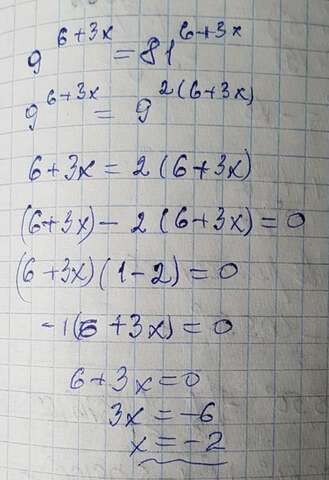 9^{6+3x} = 81^{6+3x}
9^{6+3x} = 9^{2(6+3x)}
6+3x = 2(6+3x)
(6+3x) - 2(6+3x) = 0
(6+3x)(1-2) = 0
-1(6+3x) = 0
6+3x = 0
3x = -6
x = -2